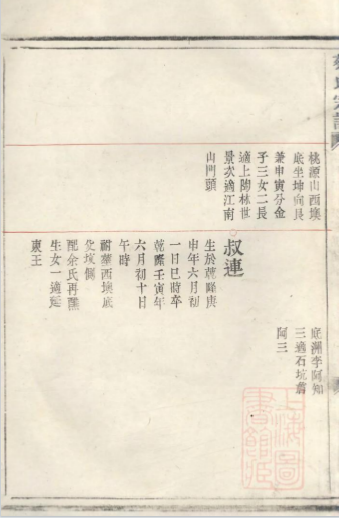 桃源山西墺
底坐坤向艮
兼申寅分金
子三女二長
適上陶林世
景次適江南
山門頭
叔連
生於乾隆庚
申年六月初
一日巳時卒
乾隆壬寅年
六月初十日
午時
祔葬西墺底
父坟側
配余氏再醮
生女一適延
東王
庭洲李阿知
三適石坑翁
阿三
上海圖
書館藏